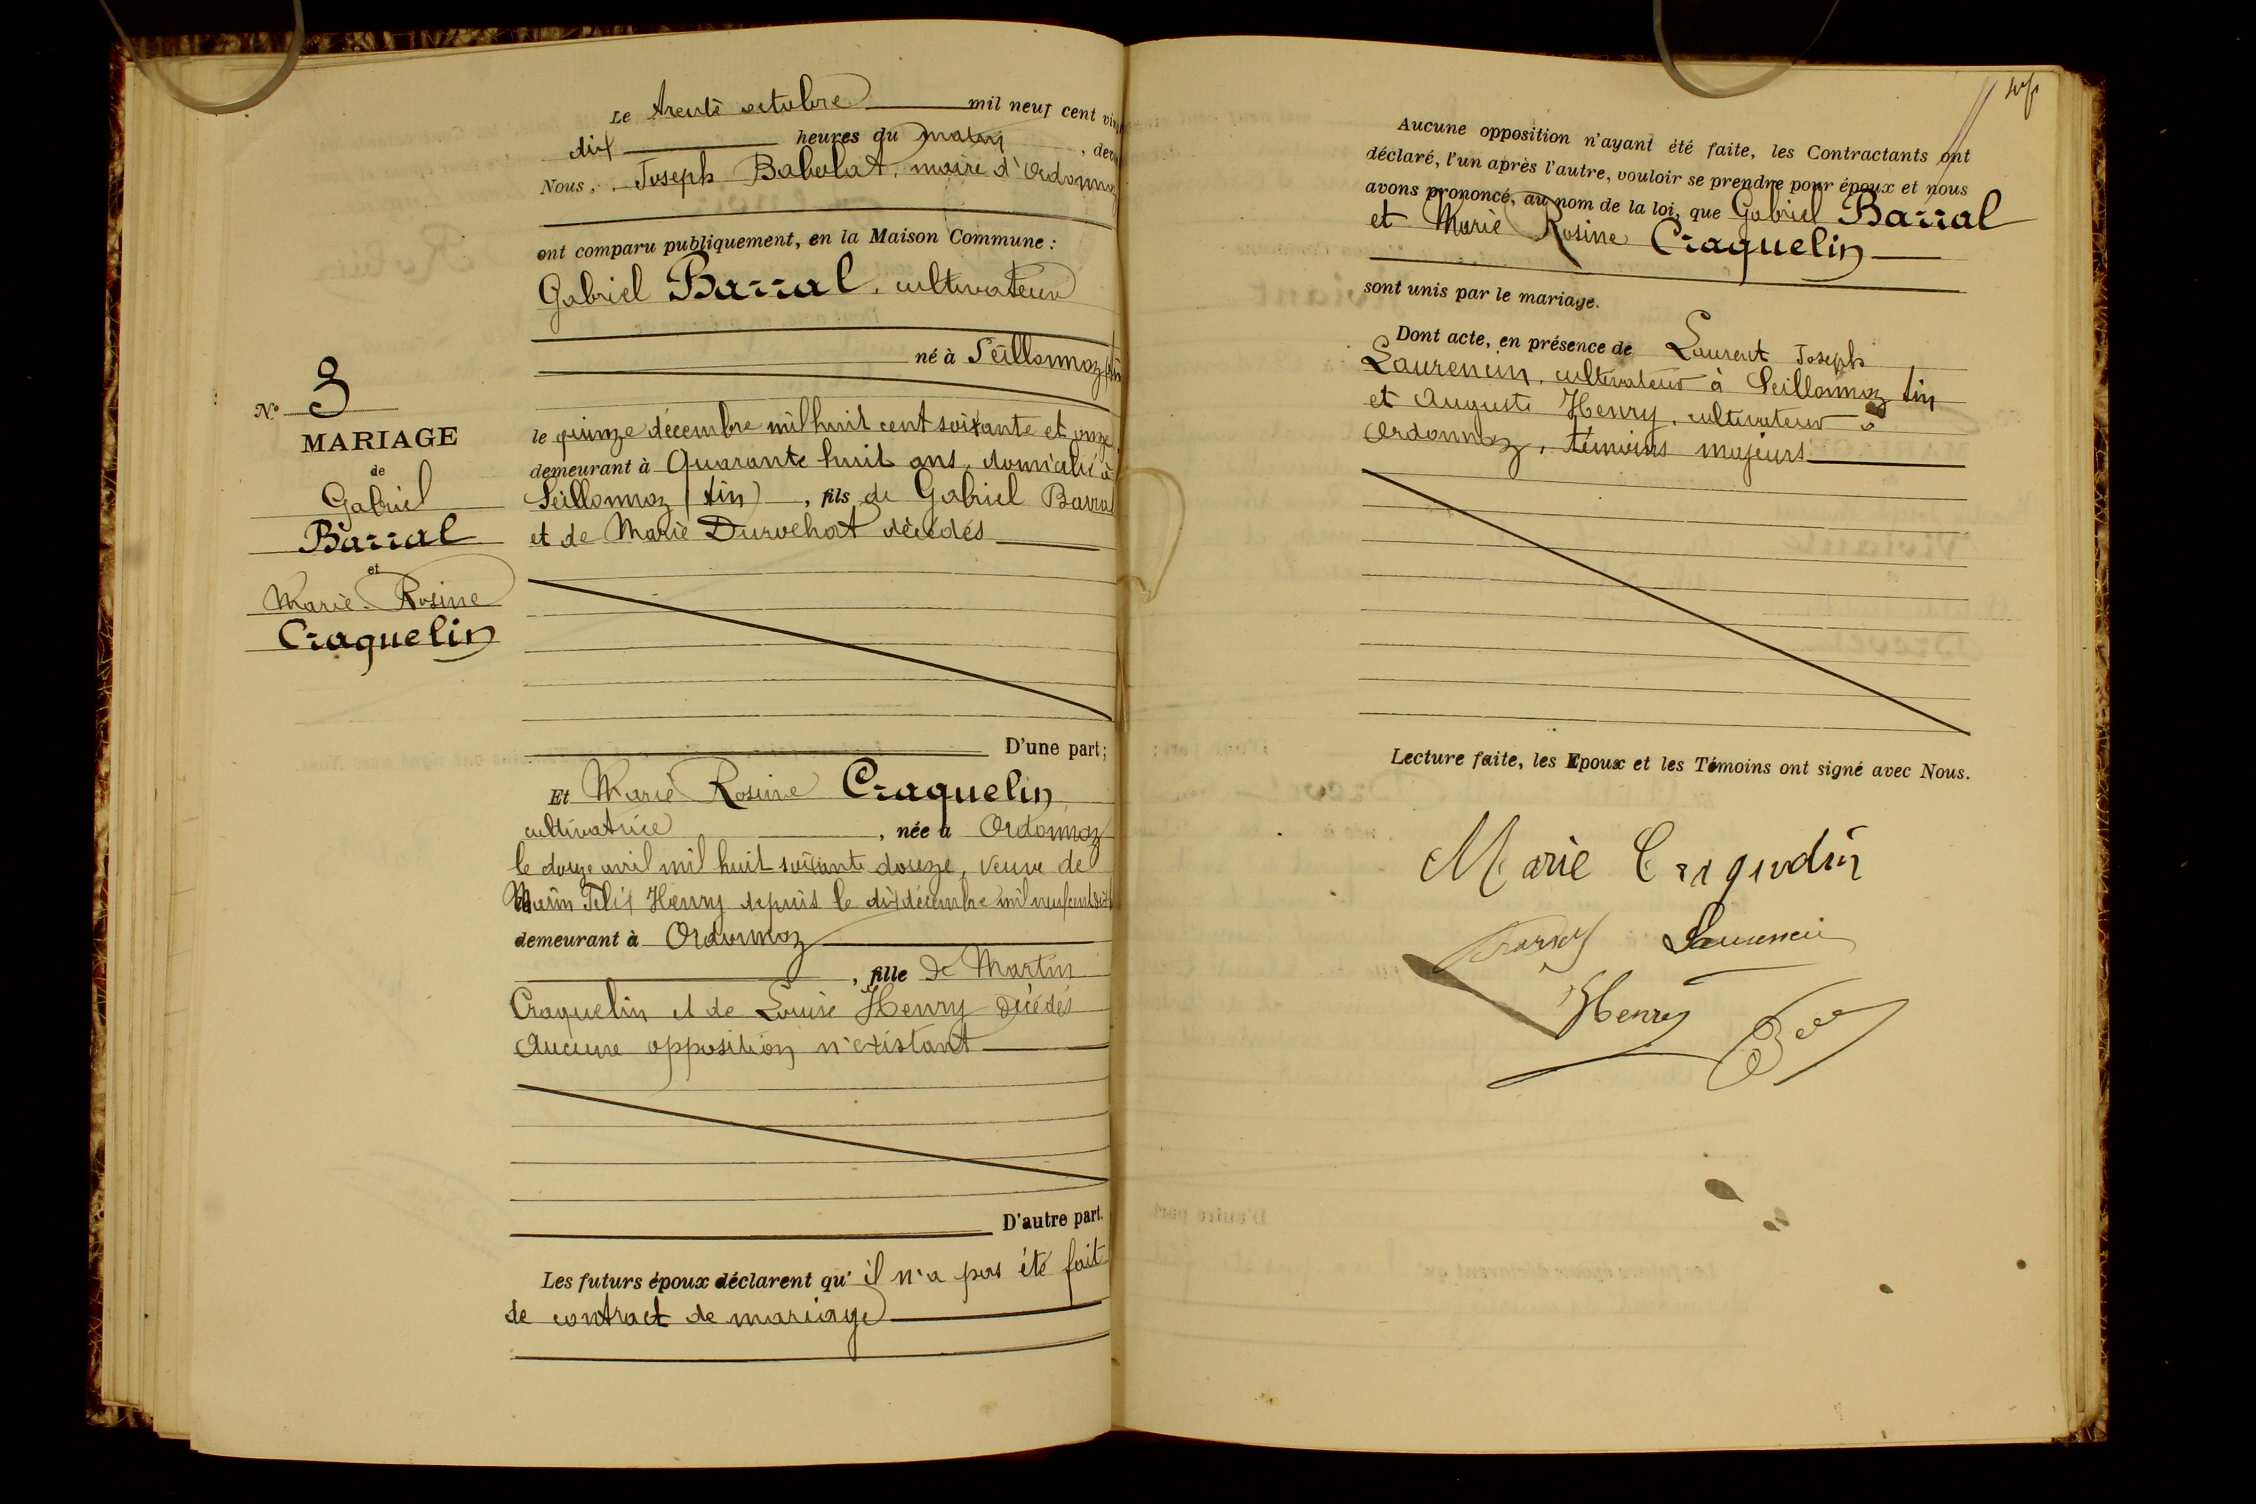 Le trente octobre mil neuf cent vin
dix heures du matin, deva
Nous, Joseph Babolat, maire d'Ordonnaz
ont comparu publiquement, en la Maison Commune :
Gabriel Barral, cultivateur
né à Seillonnaz (Ain
N° 3
MARIAGE
de
Gabriel
Barral
et
Marie Rosine
Craquelin
le quinze décembre mil huit cent soixante et onze
demeurant à Quarante huit ans, domicilié à
Seillonnaz (Ain), fils de Gabriel Barral
et de Marie Durochat décédés
D'une part;
Et Marie Rosine Craquelin
cultivatrice, née à Ordonnaz
le douze avril mil huit soixante douze, veuve de
Marin Félix Henry depuis le dix décembre mil neuf cent dix
demeurant à Ordonnaz
, fille de Martin
Craquelin et de Louise Henry décédés
Aucune opposition n'existant
D'autre part.
Les futurs époux déclarent qu' il n'a pas été fait
de contract de mariage
Aucune opposition n'ayant été faite, les Contractants ont
déclaré, l'un après l'autre, vouloir se prendre pour époux et nous
avons prononcé, au nom de la loi, que Gabriel Barral
et Marie Rosine Craquelin
sont unis par le mariage.
Dont acte, en présence de Laurent Joseph
Laurencin, cultivateur à Seillonnaz Ain
et Auguste Henry, cultivateur à
Ordonnaz, témoins majeurs
Lecture faite, les Epoux et les Témoins ont signé avec Nous.
Marie Craquelin
Laurencin
Henry